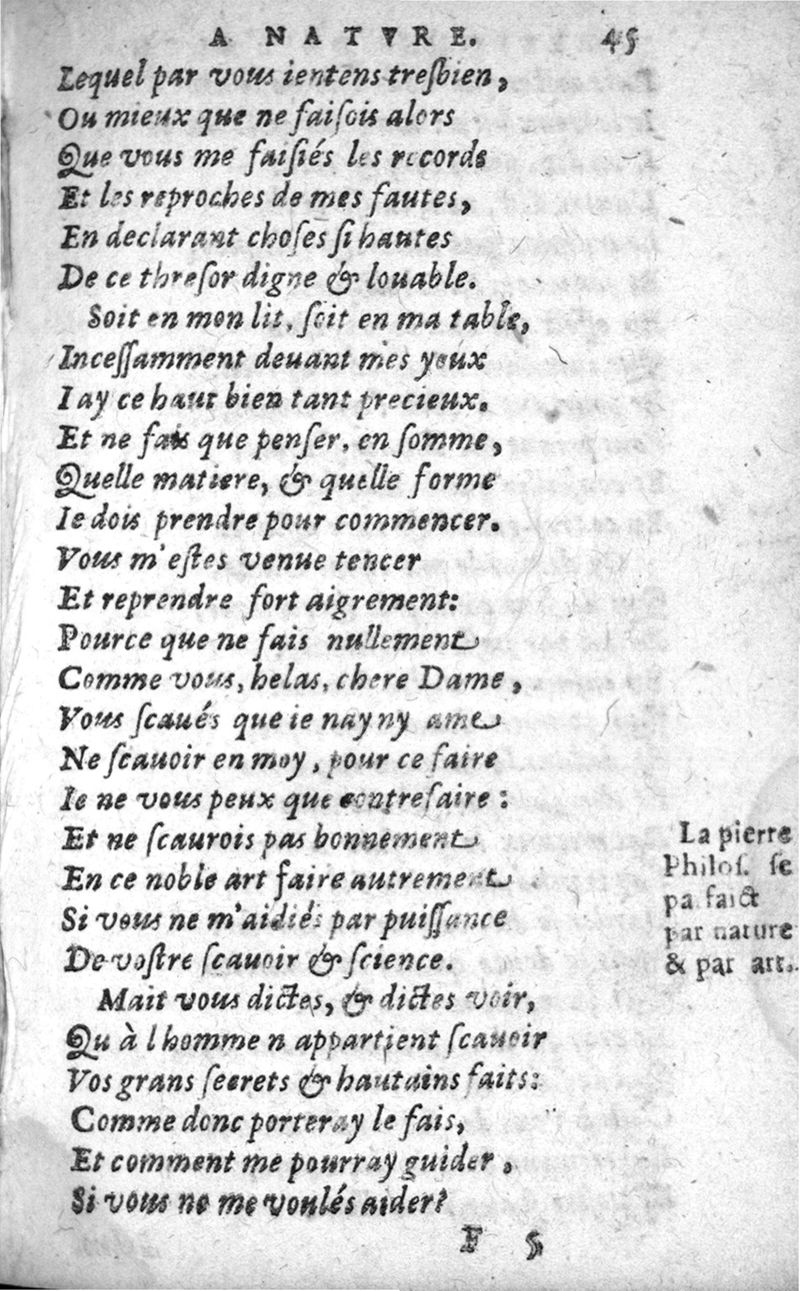 A NATVRE. 45
Lequel par vous ientens tresbien,
Ou mieux que ne faiſois alors
Que vous me faiſiés les records
Et les reproches de mes fautes,
En declarant choſes ſi hautes
De ce threſor digne & louable.
Soit en mon lit, ſoit en ma table,
Inceſſamment deuant mes yeux
I ay ce haut bien tant precieux.
Et ne fais que penſer, en ſomme,
Quelle matiere, & quelle forme
Ie dois prendre pour commencer.
Vous m'eſtes venue tencer
Et reprendre fort aigrement:
Pource que ne fais nullement
Comme vous, helas, chere Dame,
Vous ſcaués que ie nay ny ame
Ne ſcauoir en moy, pour ce faire
Ie ne vous peux que contrefaire:
Et ne ſcaurois pas bonnement
En ce noble art faire autrement
Si vous ne m'aidiés par puiſſance
De voſtre ſcauoir & ſcience.
Mait vous dictes, & dictes voir,
Qu à l homme n appartient ſcauoir
Vos grans ſecrets & hautains faits:
Comme donc porteray le fais,
Et comment me pourray guider,
Si vous ne me voulés aider?
La pierre
Philoſ. ſe
pa faict
par nature
& par art.
F 5